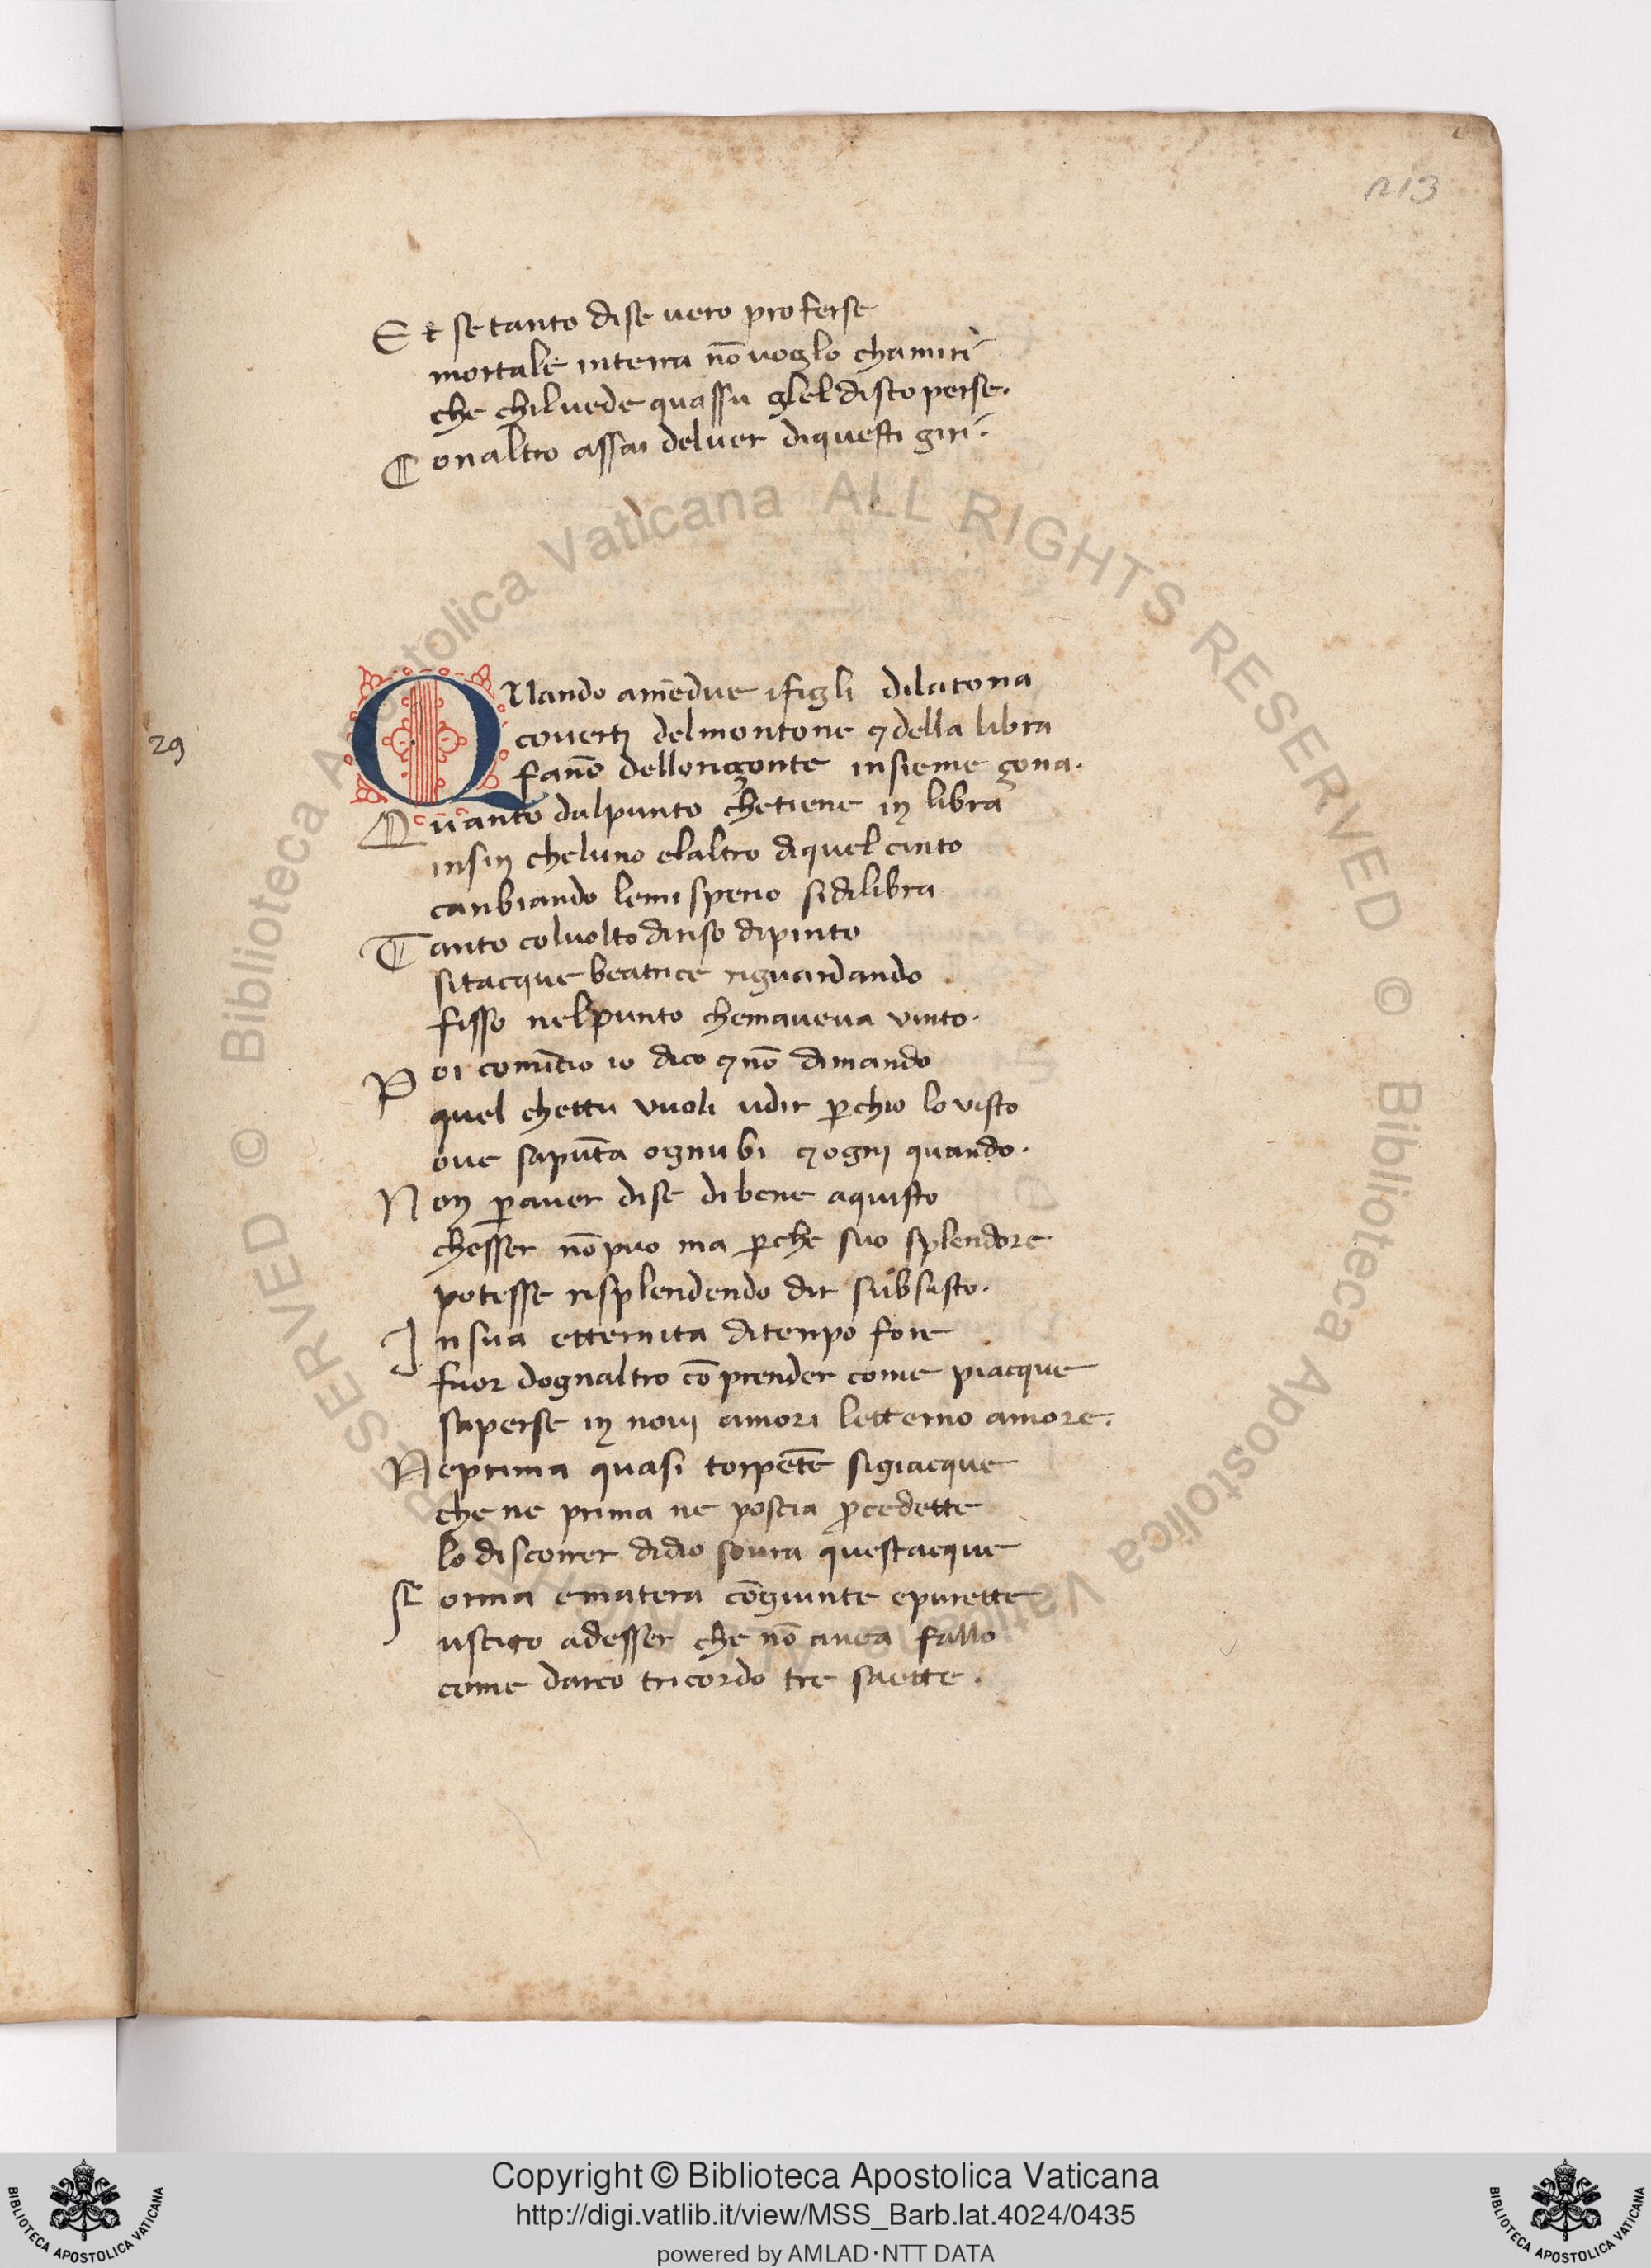 213
Et se tanto dise uero proferse
mortale interra nō uoglo chamiri
che chiluede quassu glel discoperse.
Conaltro assai deluer diquesti giri.
29
QUando amēdue ifigli dilatona
couerti delmontone ⁊ della libra
fanō delloriçonte insieme çona.
Quanto dalpunto chetiene in libra
insin cheluno elaltro diquel cinto
canbiando lemisperio sidilibra
Tanto coluolto diriso dipinto
sitacque beatrice riguardando
fisso nelpunto chemaueua vinto.
Poi comīcio io dico ⁊ nō dimando
quel chettu vuoli udir ꝑchio lo visto
oue sapūta ognubi ⁊ ogni quando.
Non ꝑauer dise di bene aquisto
chesser nō puo ma ꝑche suo splendore
potesse risplendendo dir subsisto.
Insua etternita ditenpo fore
fuor dognaltro cōprender come piacque
saperse in noui amori letterno amore.
Neprima quasi torpēte sigiacque
che ne prima ne poscia ꝓcedette
lo discorrer didio soura questacque
Forma ematera cōgiunte epurette
usciro adesser che nō auea fallo
come darco tricordo tre saette.
© Biblioteca Apostolica Vaticana ALL RIGHTS RESERVED © Biblioteca Apostolica Vaticana ALL RIGHTS RESERVED
Copyright © Biblioteca Apostolica Vaticana
http://digi.vatlib.it/view/MSS_Barb.lat.4024/0435
powered by AMLAD·NTT DATA
BIBLIOTECA APOSTOLICA VATICANA
BIBLIOTECA APOSTOLICA VATICANA